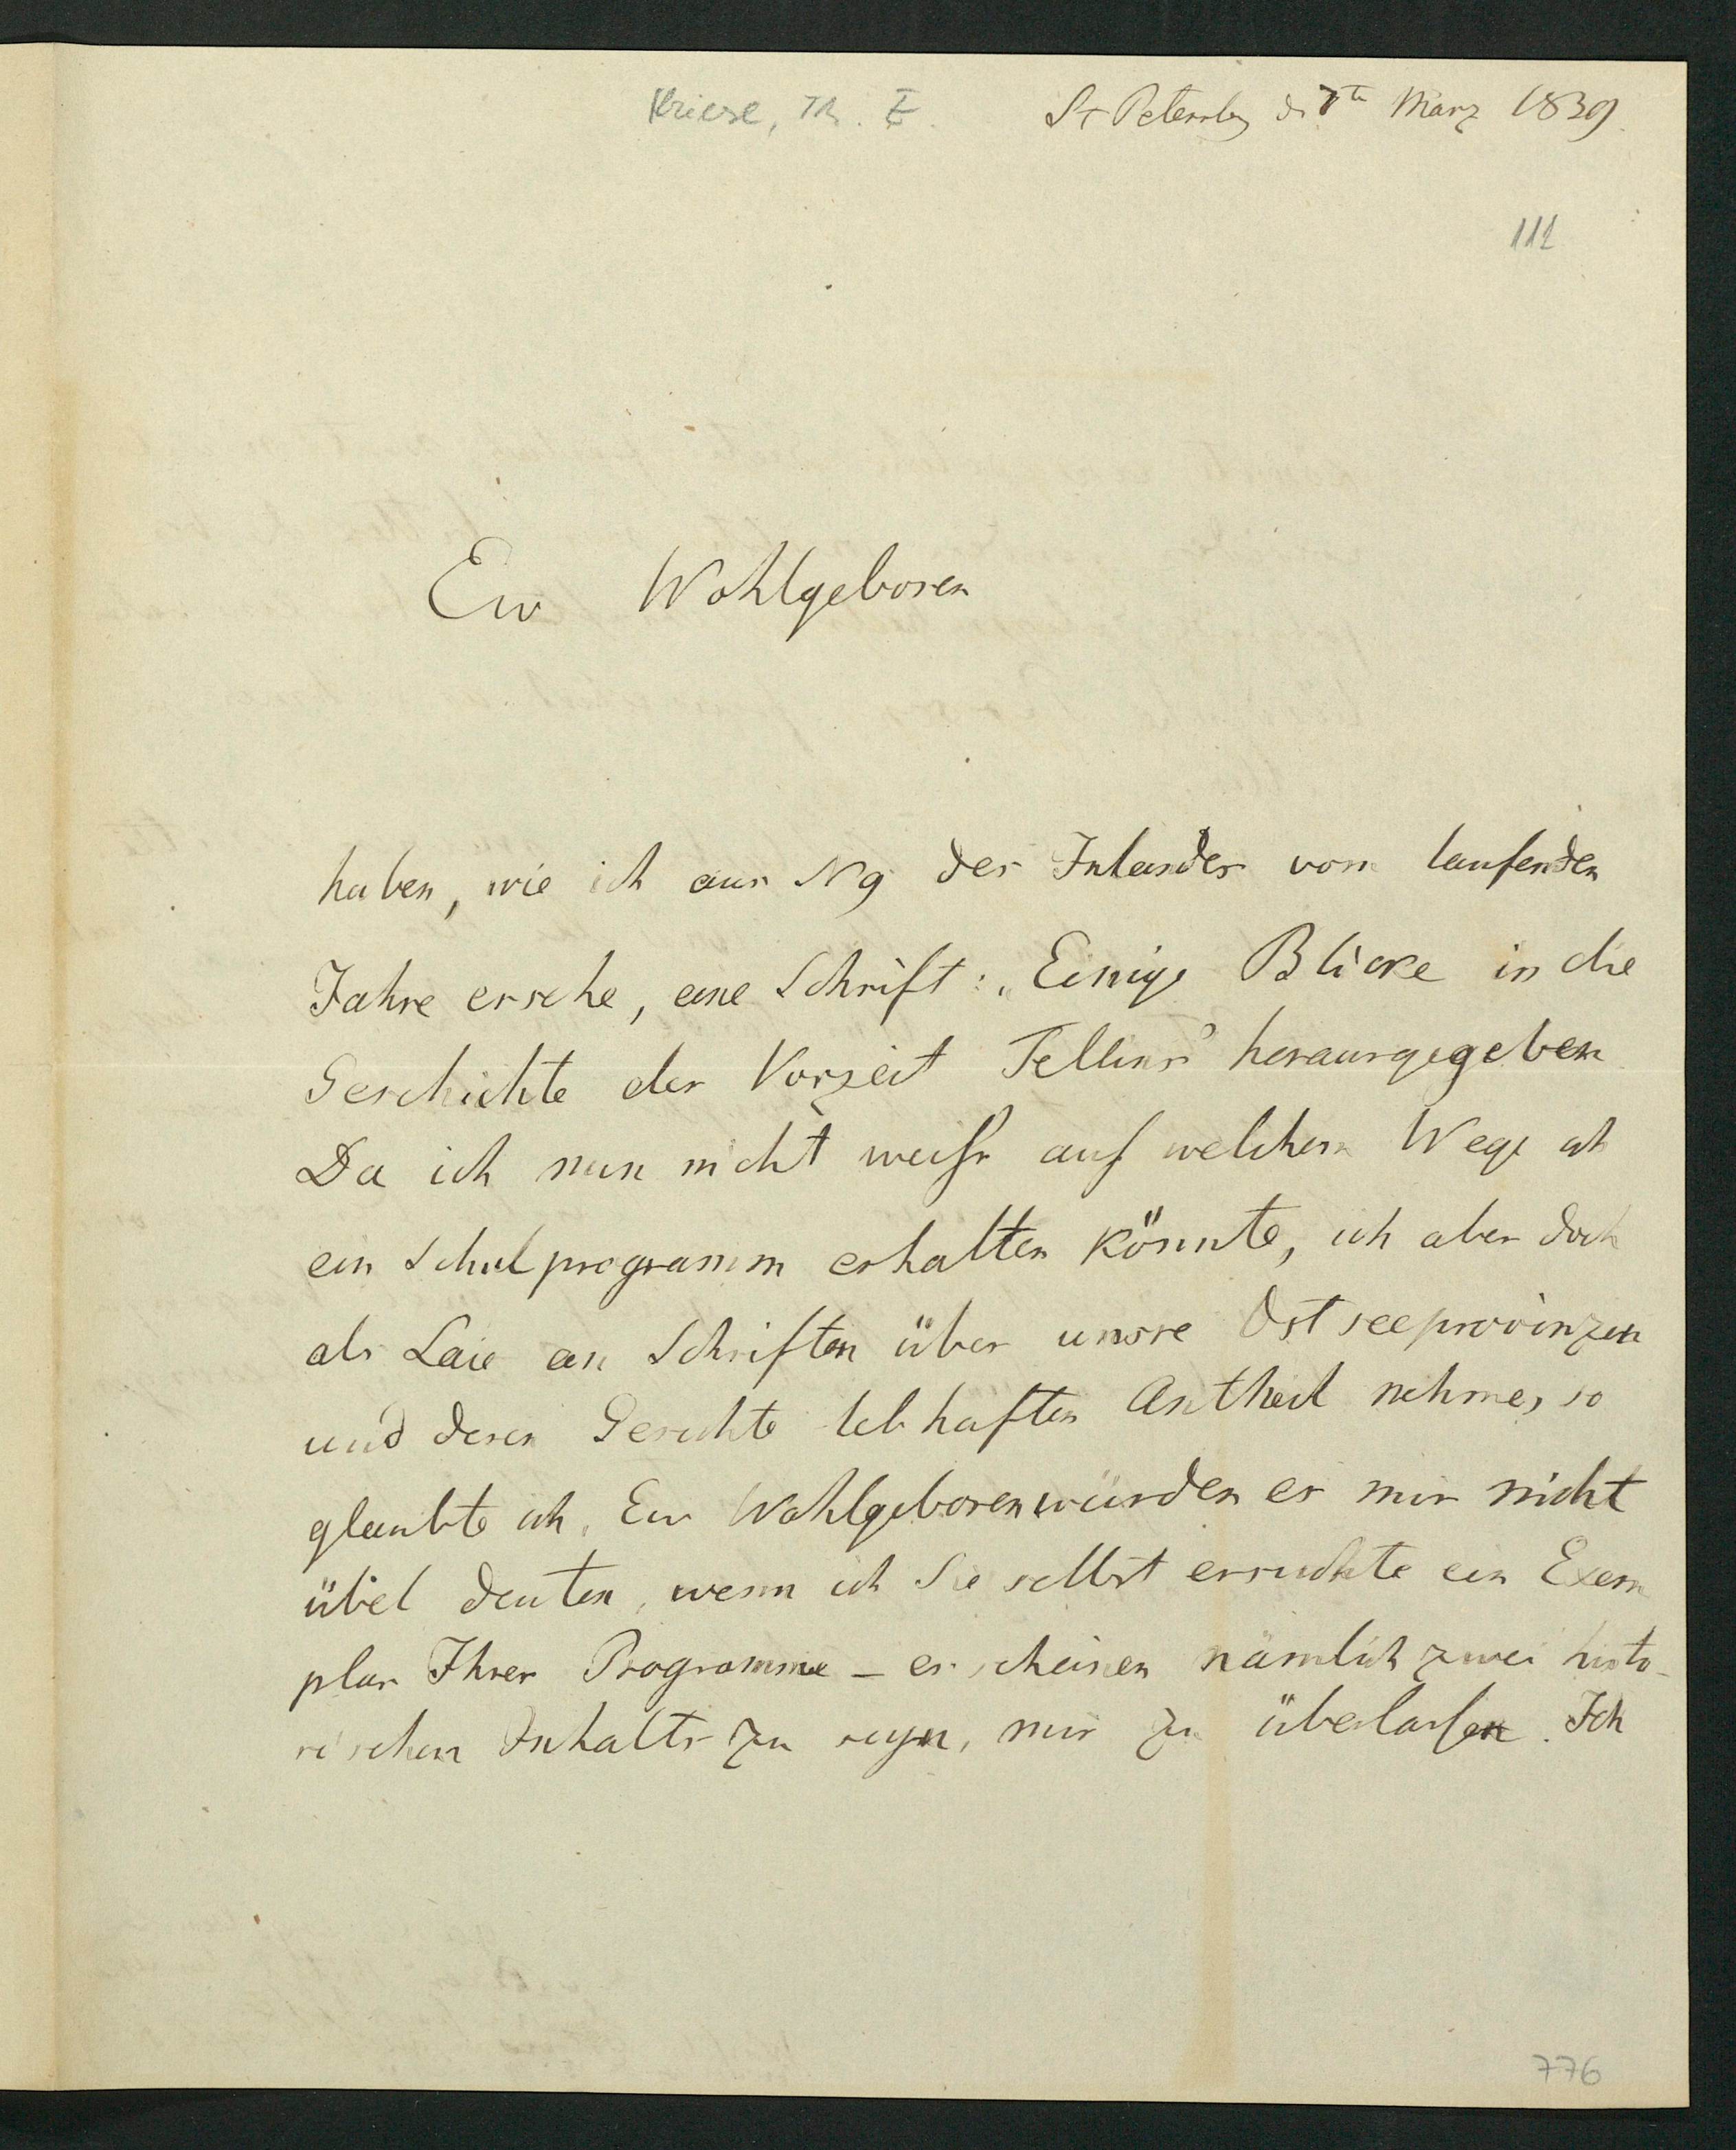 Kriese, Th. E.
St Petersbg d 7ten März 1839.
111
Ew Wohlgeboren
haben, wie ich aus N 9 des Inlandes vom laufenden
Jahre ersehe, eine Schrift: „Einige Blicke in die
Geschichte der Vorzeit Fellins" herausgegeben
Da ich nun nicht weiß auf welchem Wege ich
ein Schulprogramm erhalten könnte, ich aber doch
als Laie an Schriften über unsre Ostseeprovinzen
und deren Geschichte lebhaften Antheil nehme, so
glaubte ich, Ew Wohlgeboren würden es mir nicht
übel deuten, wenn ich Sie selbst ersuchte ein Exem
plar Ihrer Programme – es scheinen nämlich zwei histo-
rischen Inhalts zu seyn, mir zu überlassen. Ich
776